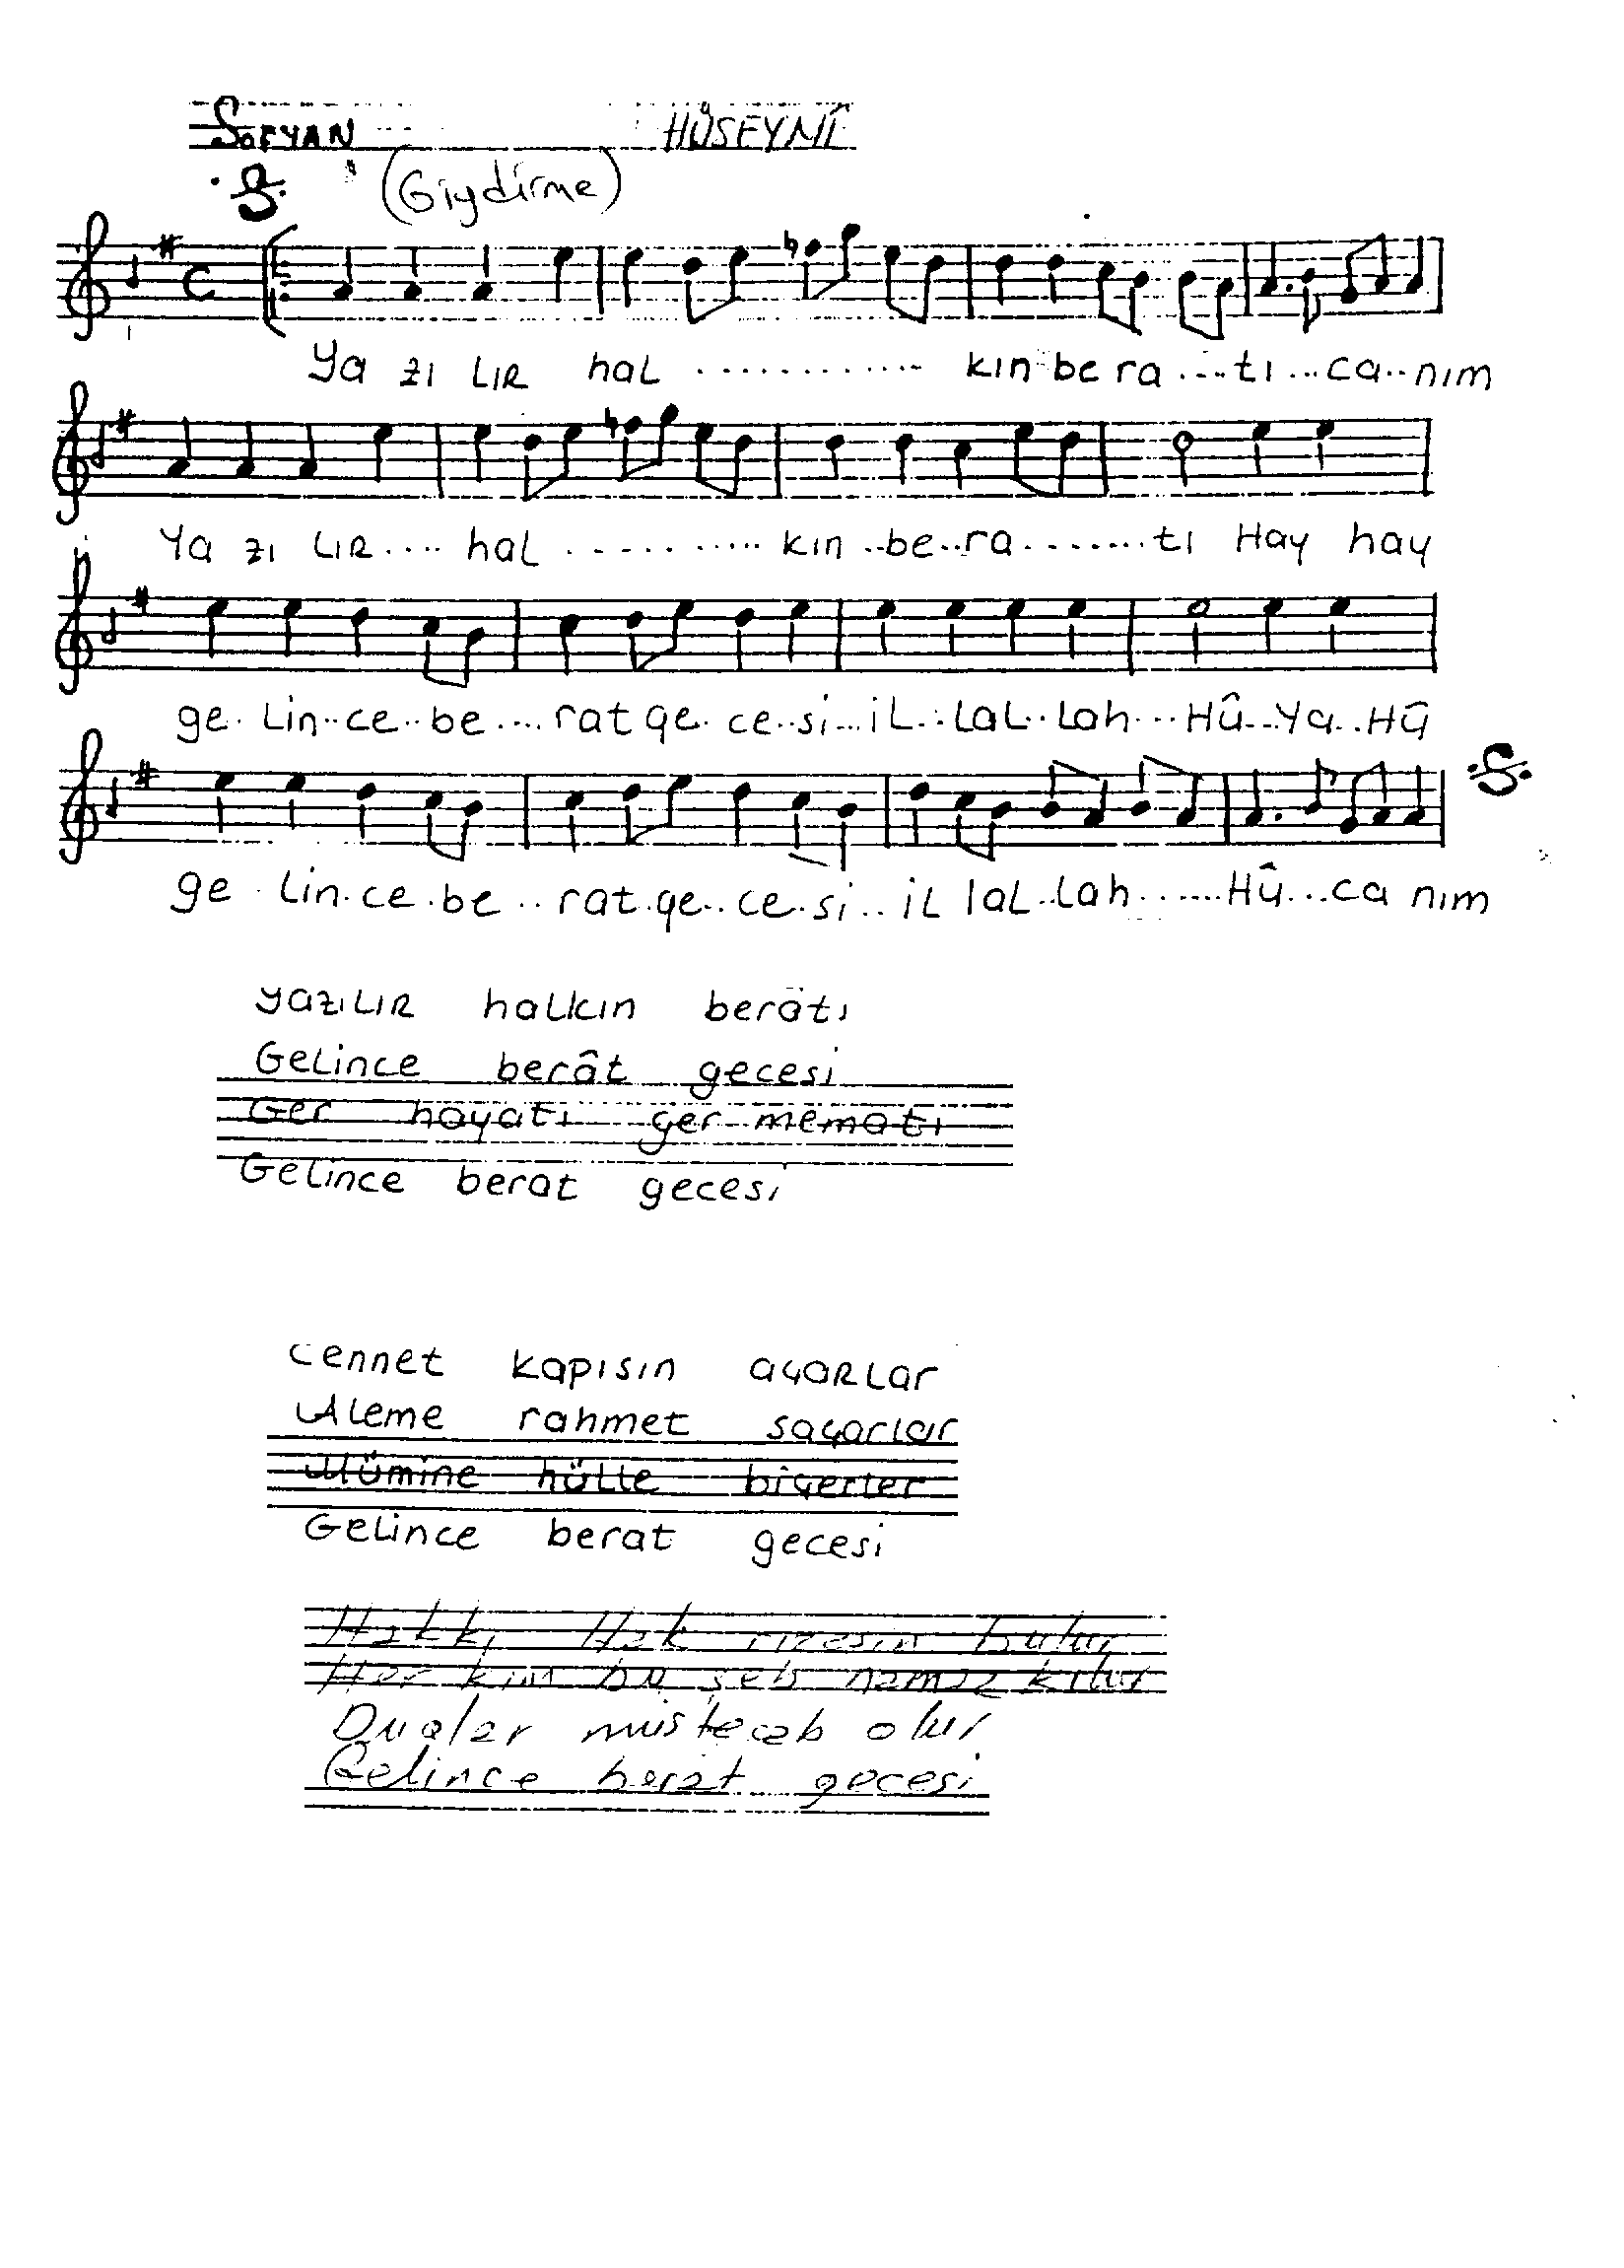 SOFYAN HÜSEYNÎ
(Giydirme)
Ya zı LıR haL ............ kın be ra ....tı ...ca..nım
Ya zı LıR.... haL ........... kın ..be..ra........tı Hay hay
ge. Lin..ce..be....rat ge. ce..si...iL..LaL..Lah...Hû...Ya..Hû
ge . Lin.ce.be ..rat.ge..ce.si..iL laL..Lah ......Hû...ca nım
yazıLıR halkın berâtı
GeLince berât gecesi
Ger hayatı ger mematı
Gelince berat gecesi
Cennet kapısın açaRLar
ALeme rahmet saçarlar
Mümine hülle biçerler
GeLince berat gecesi
Hakkı Hak rızasın bulur
Her kim bu şeb namaz kılur
Dualar müstecab olur
Gelince berat gecesi